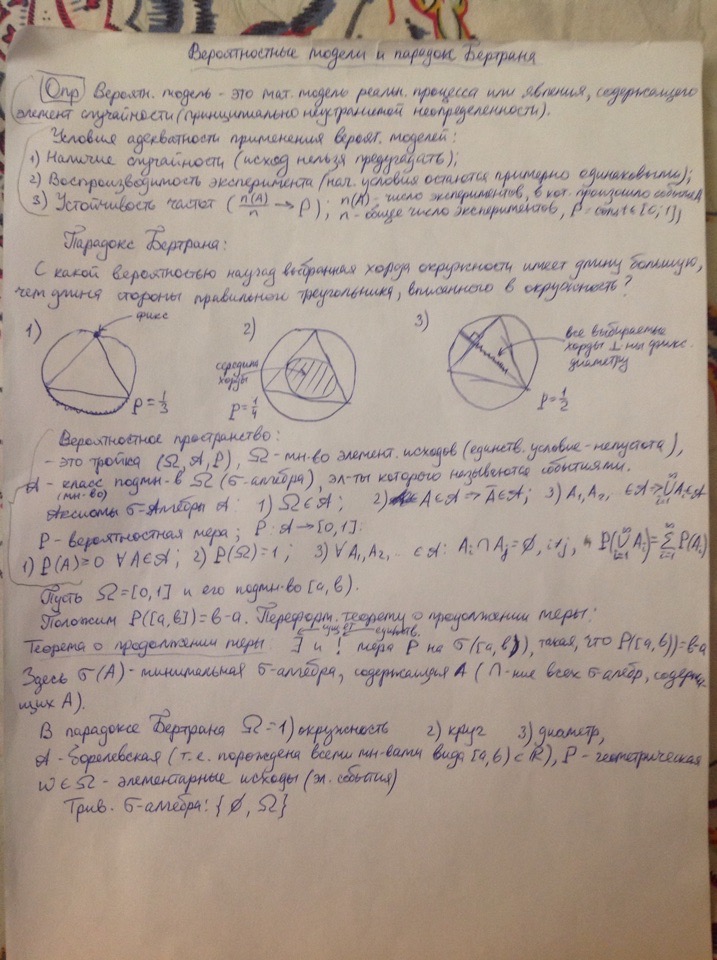 Вероятностные модели и парадокс Бертрана
Опр Вероятн. модель - это мат. модель реальн. процесса или явления, содержащего
элемент случайности (принципиально неустранимой неопределенности).
Условия адекватности применения вероят. моделей:
1) Наличие случайности (исход нельзя предугадать);
2) Воспроизводимость эксперимента (нач. условия остаются примерно одинаковыми);
3) Устойчивость частот (n(A)/n → P); n(A) - число экспериментов, в кот. произошло событие A
n - общее число экспериментов, P = const ∈ [0,1],
Парадокс Бертрана:
С какой вероятностью наугад выбранная хорда окружности имеет длину большую,
чем длина стороны правильного треугольника, вписанного в окружность?
1) фикс P = 1/3
2) середина хорды P = 1/4
3) все выбираемые хорды ⊥ ны фикс. диаметру P = 1/2
Вероятностное пространство:
- это тройка (Ω, 𝒜, P), Ω - мн-во элемент. исходов (единств. условие - непустота),
𝒜 - класс (мн-во) подмн-в Ω (σ-алгебра), эл-ты которого называются событиями.
Аксиомы σ-алгебры 𝒜: 1) Ω ∈ 𝒜; 2) A ∈ 𝒜 ⇒ Ā ∈ 𝒜; 3) A₁, A₂, ∈ 𝒜 ⇒ ⋃_{i=1}^∞ Aᵢ ∈ 𝒜
P - вероятностная мера; P: 𝒜 → [0,1]:
1) P(A) ≥ 0 ∀ A ∈ 𝒜; 2) P(Ω) = 1; 3) ∀ A₁, A₂, .. ∈ 𝒜: Aᵢ ∩ Aⱼ = ∅, i≠j, P(⋃_{i=1}^∞ Aᵢ) = ∑_{i=1}^∞ P(Aᵢ)
Пусть Ω = [0,1] и его подмн-во [a,b).
Положим P([a,b]) = b-a. Переформ. теорему о продолжении меры:
Теорема о продолжении меры: ∃ и ! мера P на σ([a,b)), такая, что P([a,b)) = b-a
Здесь σ(A) - минимальная σ-алгебра, содержащая A (∩-ние всех σ-алгебр, содержа-
щих A).
В парадоксе Бертрана Ω = 1) окружность 2) круг 3) диаметр,
𝒜 - борелевская (т.е. порождена всеми мн-вами вида [a,b) ⊂ ℝ), P - геометрическая
ω ∈ Ω - элементарные исходы (эл. события)
Трив. σ-алгебра: {∅, Ω}